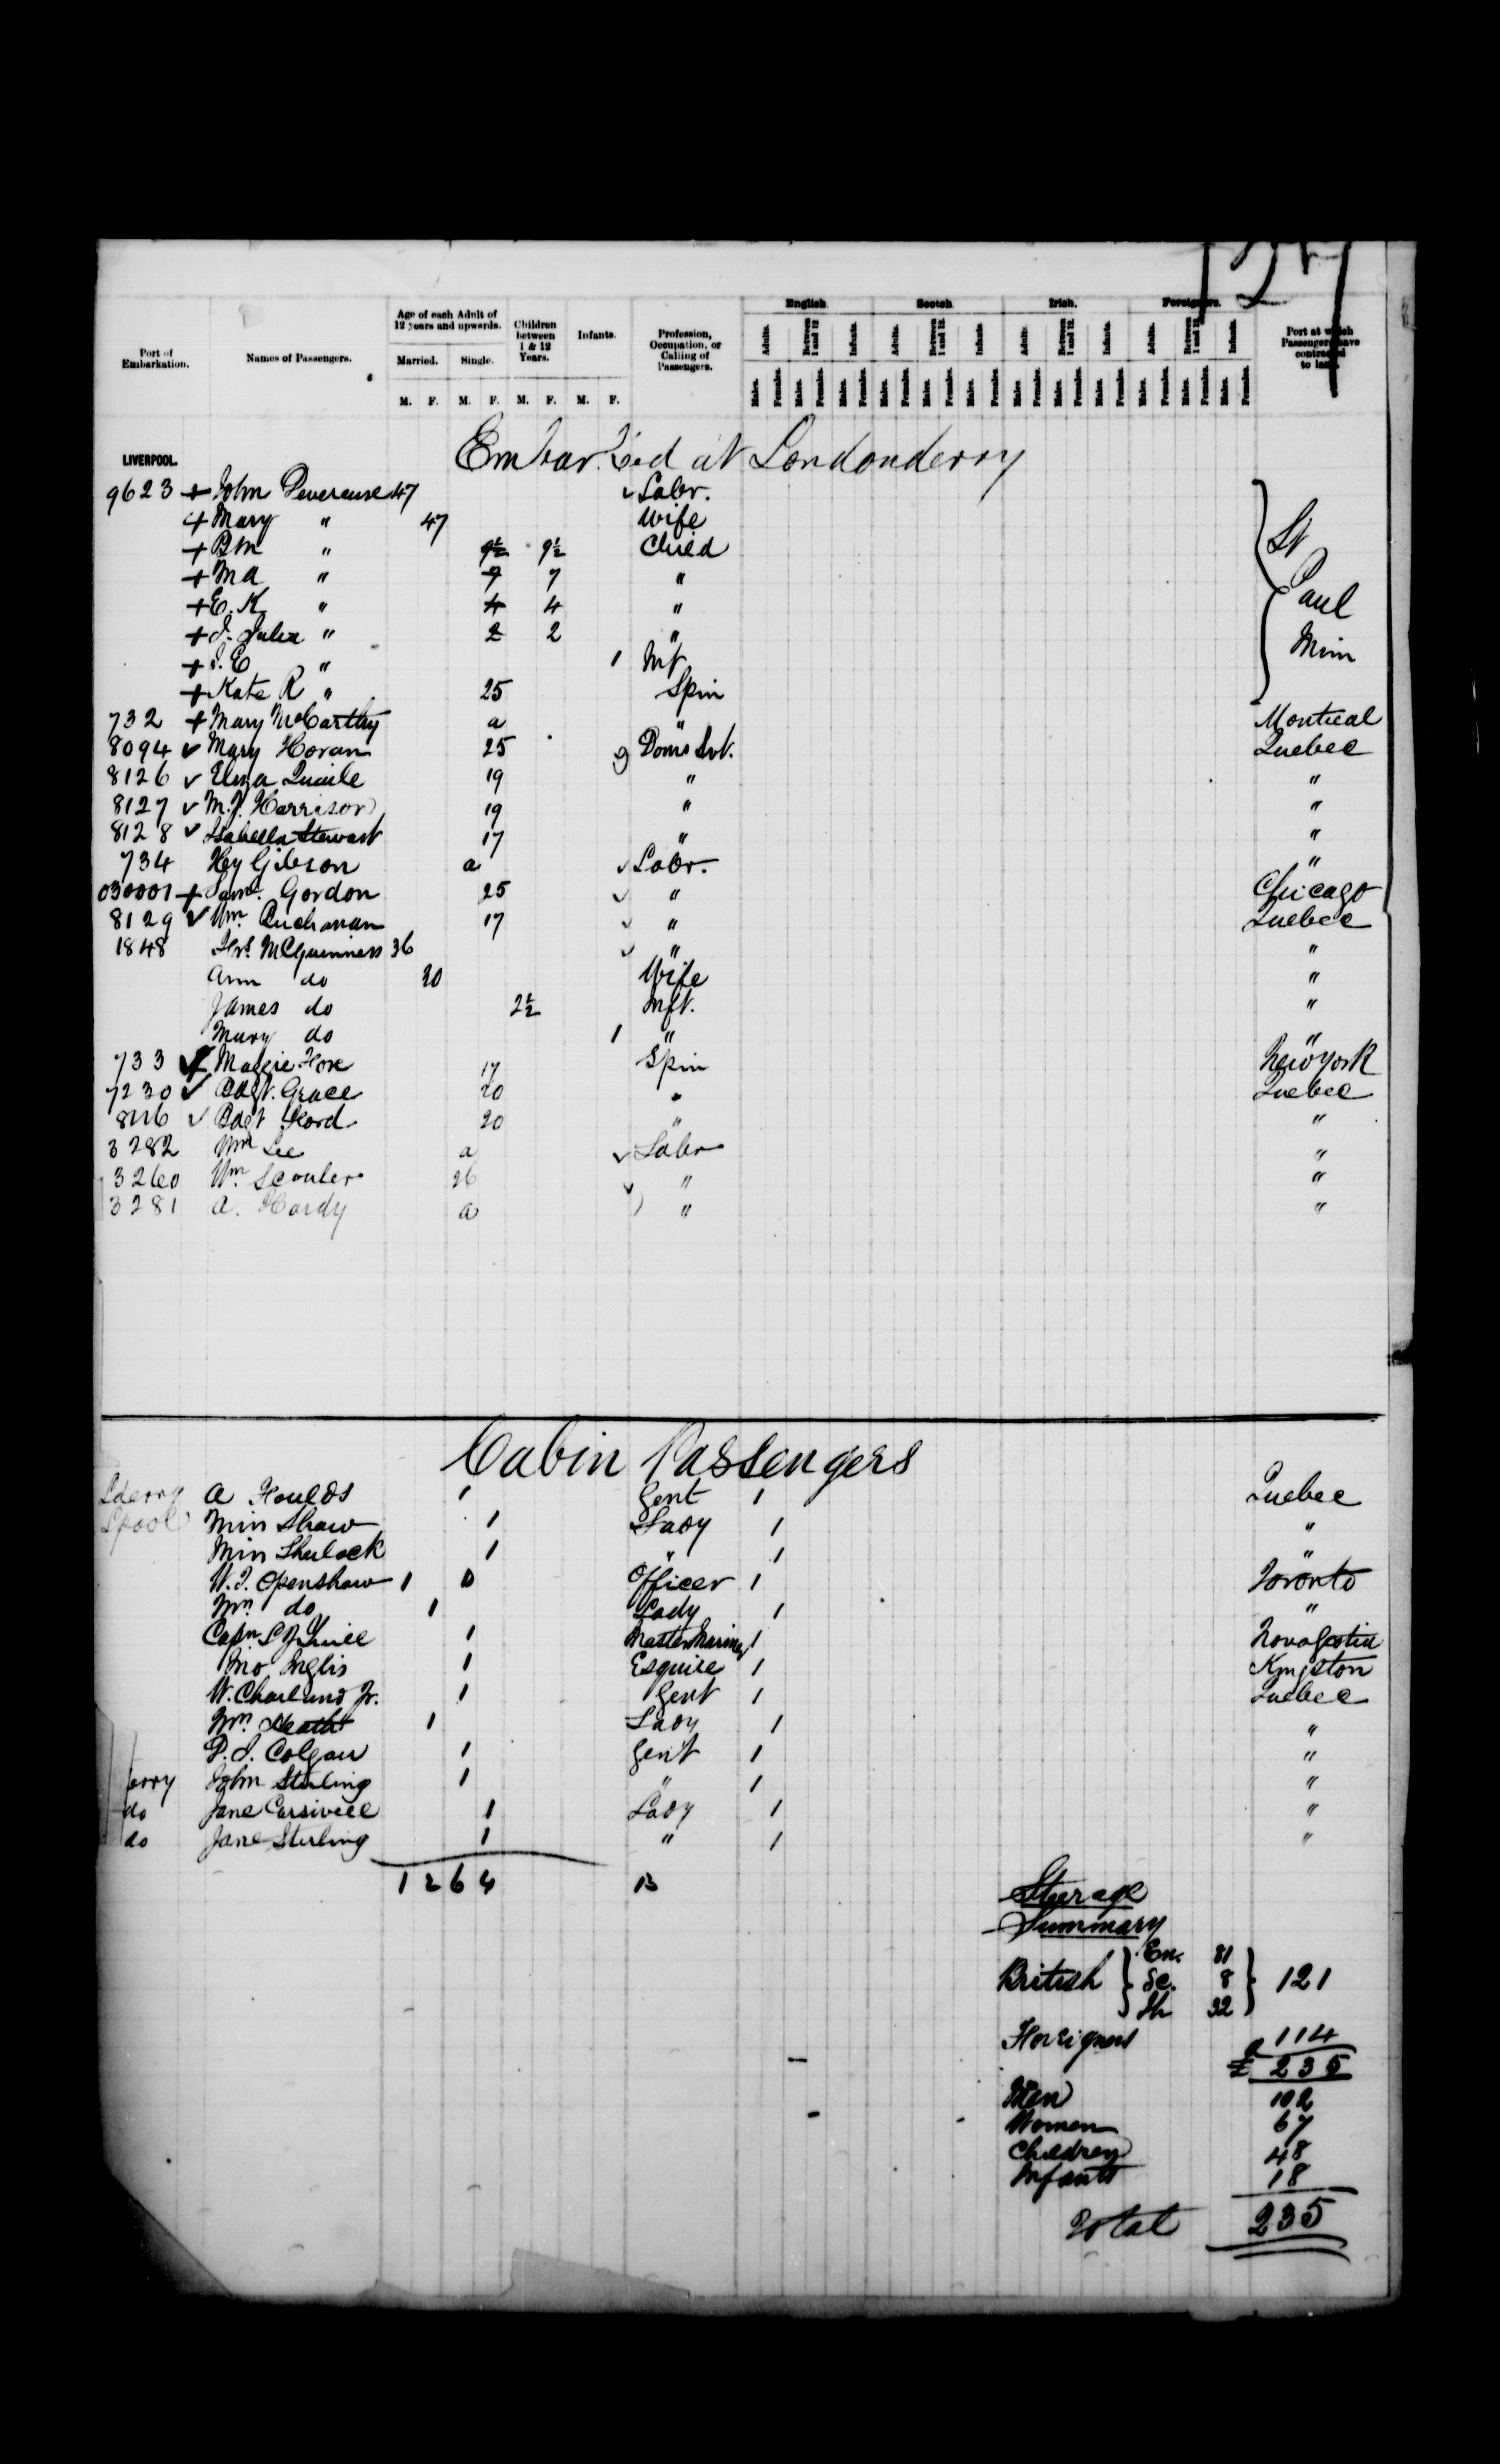 Port of Embarkation. Names of Passengers. Age of each Adult of 12 years and upwards. Children between 1 & 12 Years. Infants. Profession, Occupation, or Calling of Passengers. English. Scotch. Irish. Foreigners. Port at which Passengers have contracted to land.
Married. Single. Adults. Between 1 and 12 Infants. Adults. Between 1 and 12. Infants Adults. Between 1 and 12. Infants. Adults. Between 1 and 12. Infants.
M. F. M. F. M. F. M. F. Males. Females. Males. Females. Males. Females. Males. Females. Males. Females. Males. Females. Males. Females. Males. Females. Males. Females. Males. Females. Males. Females. Males. Females.
Embarked at Londonderry
LIVERPOOL.
9623 + John Devereuse 47 Labr. St Paul Minn
+ Mary " 47 Wife
+ Bm " 9½ 9½ Child
+ Ma " 7 7 "
+ E. K " 4 4 "
+ J. Julia " 2 2 "
+ J. E " 1 Inft
+ Kate R " 25 Spin
732 + Mary McCarthy a " Montreal
8094 ✓ Mary Horan 25 Doms Svt. Quebec
8126 ✓ Eliza 19 " "
8127 ✓ M.J. Harrison 19 " "
8128 ✓ Isabella Stewart 17 " "
734 Hy Gibson a ✓ Labr. "
030001 + Saml. Gordon 25 ✓ " Chicago
8129 ✓ Wm. Buchanan 17 ✓ " Quebec
1848 McGuinness 36 ✓ " "
Ann do 30 Wife "
James do 2½ Inft. "
Mary do 1 " "
733 Maggie Hore 17 Spin New York
7230 ✓ Bdgt. Grace 20 " Quebec
✓ Bdgt Ford 20 " "
3282 Wm Lee a ✓ Labr "
3260 Wm. Scouler 26 ✓ " "
3281 A. Hardy a " "
Cabin Passengers
Lderry A Foulds 1 Gent 1 Quebec
Lpool Miss Shaw 1 Lady 1 "
Miss Sherlock 1 " 1 "
W.J. Openshaw 1 Officer 1 Toronto
Mrs do 1 Lady 1 "
Capn 1 Master Mariner 1 Nova Scotia
Jno Inglis 1 Esquire 1 Kingston
W. Charland Jr. 1 Gent 1 Quebec
Mrs Heath 1 Lady 1 "
P.J. Colgan 1 Gent 1 "
Derry John Stirling 1 " 1 "
do Jane Carswell 1 Lady 1 "
do Jane Stirling 1 " 1 "
1 2 6 4 13
Steerage
Summary
British En. 81
Sc. 8 121
Ih 32
Foreigners 114
£ 235
Men 102
Women 67
Children 48
Infants 18
Total 235